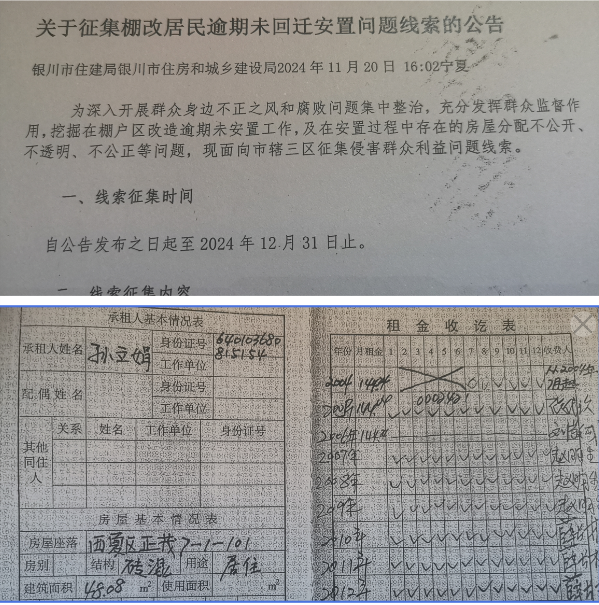 关于征集棚改居民逾期未回迁安置问题线索的公告
银川市住建局银川市住房和城乡建设局2024年11月20日 16:02宁夏
为深入开展群众身边不正之风和腐败问题集中整治，充分发挥群众监督作
用，挖掘在棚户区改造逾期未安置工作，及在安置过程中存在的房屋分配不公开、
不透明、不公正等问题，现面向市辖三区征集侵害群众利益问题线索。
一、线索征集时间
自公告发布之日起至2024年12月31日止。
二、线索征集内容
承租人基本情况表
承租人姓名 孙立娟 身份证号 640103680
815154
工作单位
配偶姓名 身份证号
工作单位
其他同住人 关系 姓名 工作单位 身份证号
房屋基本情况表
房屋座落 西夏区正茂7-1-101
房别 结构 砖混 用途 居住
建筑面积 48.08 m² 使用面积 m²
租金收讫表
年份 月租金 1 2 3 4 5 6 7 8 9 10 11 12 收费人
2004
2006年
2007年
2008年
2009年
2010年
2011年
2012年